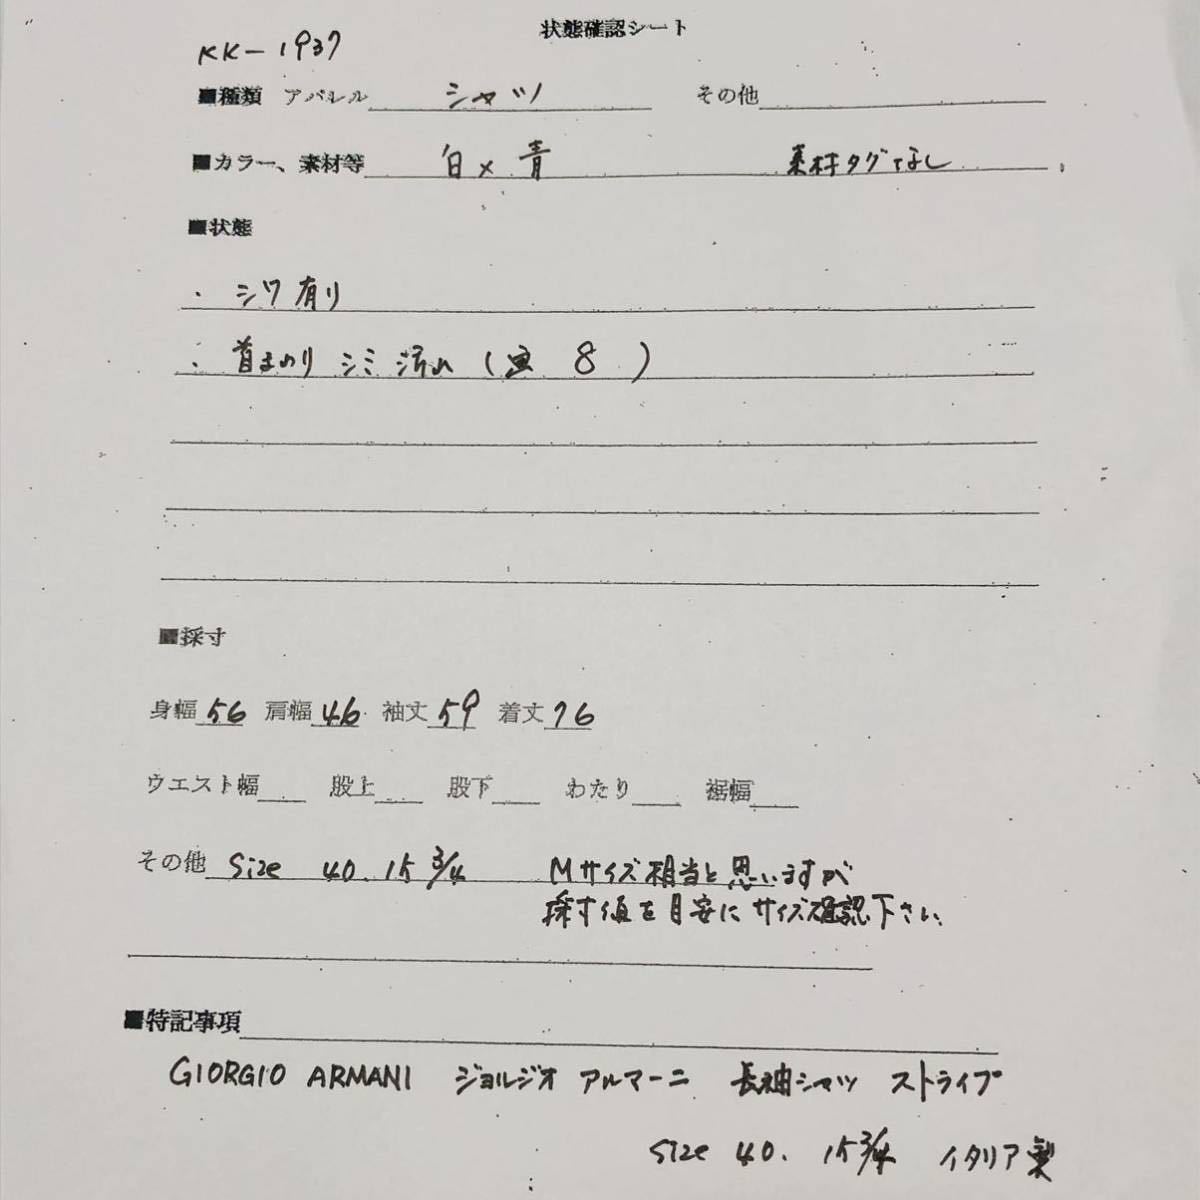 状態確認シート
KK-1937
■種類 アパレル シャツ その他
■カラー、素材等 白×青 素材タグなし
■状態
・シワ有り
・首まわり シミ汚れ ( 8 )
■採寸
身幅 56 肩幅 46 袖丈 59 着丈 76
ウエスト幅 股上 股下 わたり 裾幅
その他 Size 40. 15 3/4 Mサイズ相当と思いますが
採寸値を目安にサイズ確認下さい。
■特記事項
GIORGIO ARMANI ジョルジオ アルマーニ 長袖シャツ ストライプ
Size 40. 15 3/4 イタリア製